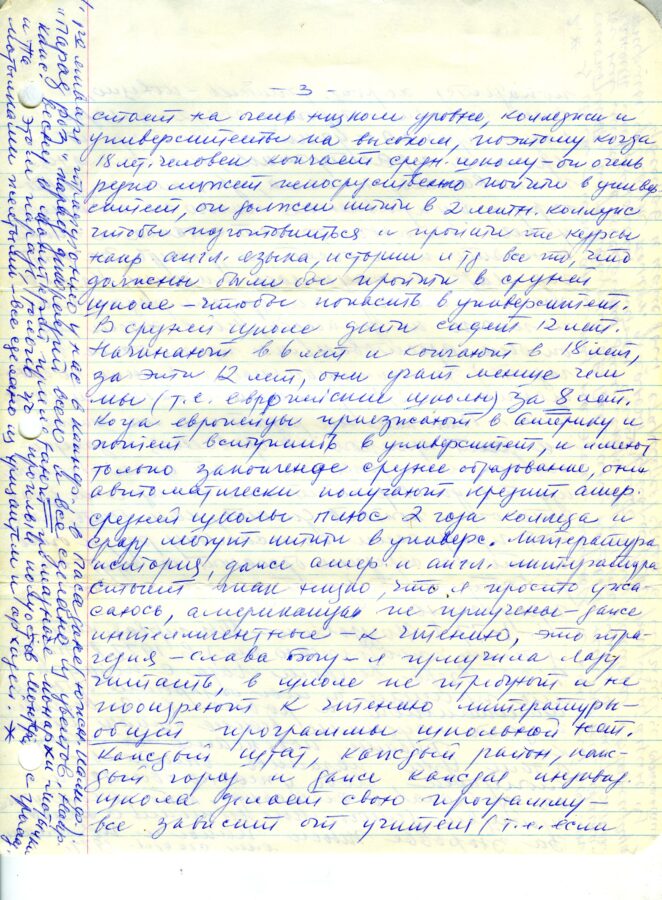 - 3 -
стоит на очень низком уровне, колледжи и
университеты на высоком, поэтому когда
18 лет. человек кончает средн. школу – он очень
редко может непосредственно пойти в универ
ситет, он должен итти в 2 летн. колледж
чтобы подготовиться и пройти те курсы
напр англ. языка, истории и т.д. все то, что
должны были бы пройти в средней
школе – чтобы попасть в университет.
В средней школе дети сидят 12 лет.
Начинают в 6 лет и кончают в 18 лет,
за эти 12 лет, они учат меньше чем
мы (т.е. европейские школы) за 8 лет.
Когда европейцы приезжают в Америку и
хотят вступить в университет, и имеют
только законченное среднее образование, они
автоматически получают кредит амер.
средней школы плюс 2 года колледжа и
сразу могут итти в универс. Литература
история, даже амер и англ литература
стоит так низко, что я просто ужа-
саюсь, американцы не приучены – даже
интеллигентные – к чтению, это тра-
гедия – слава Богу – я приучила Лару
читать, в школе не требуют и не
поощряют к чтению литературы –
общей программы школьной нет.
Каждый штат, каждый район, каж-
дый город и даже каждая индивид.
школа делает свою программу –
все зависит от учителя (т.е. если
1го января традиционно у нас в Калифор. в Пасадене (южн. Калифор.):
"Парад роз", парад движений всего и все сделано из цветов. Напр.
как весну в
и на этом параде
мотыльками желтыми – все сделано из хризантем и орхидей. *